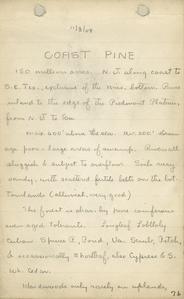 11/3/08
COAST PINE
150 million acres. N.J. along coast to
S.E. Tex., exclusive of the Miss. bottom. Runs
inland to the edge of the Piedmont Plateau,
from N.J. to Ga.
600' above the sea. Av. 200'. drain-
age poor - large areas of swamp. Rivers all
sluggish & subject to overflow. Soils very
sandy, with scattered fertile belts on the bot-
tomlands (alluvial, very good)
The forest is char. by pure coniferous
even-aged tolerants. Longleaf Loblolly
Cuban Spruce P., Pond, Va. Scrub, Pitch,
& occasionally Shortleaf, also Cypress & S.
Wh. Cedar.
Hardwoods only rarely on uplands,